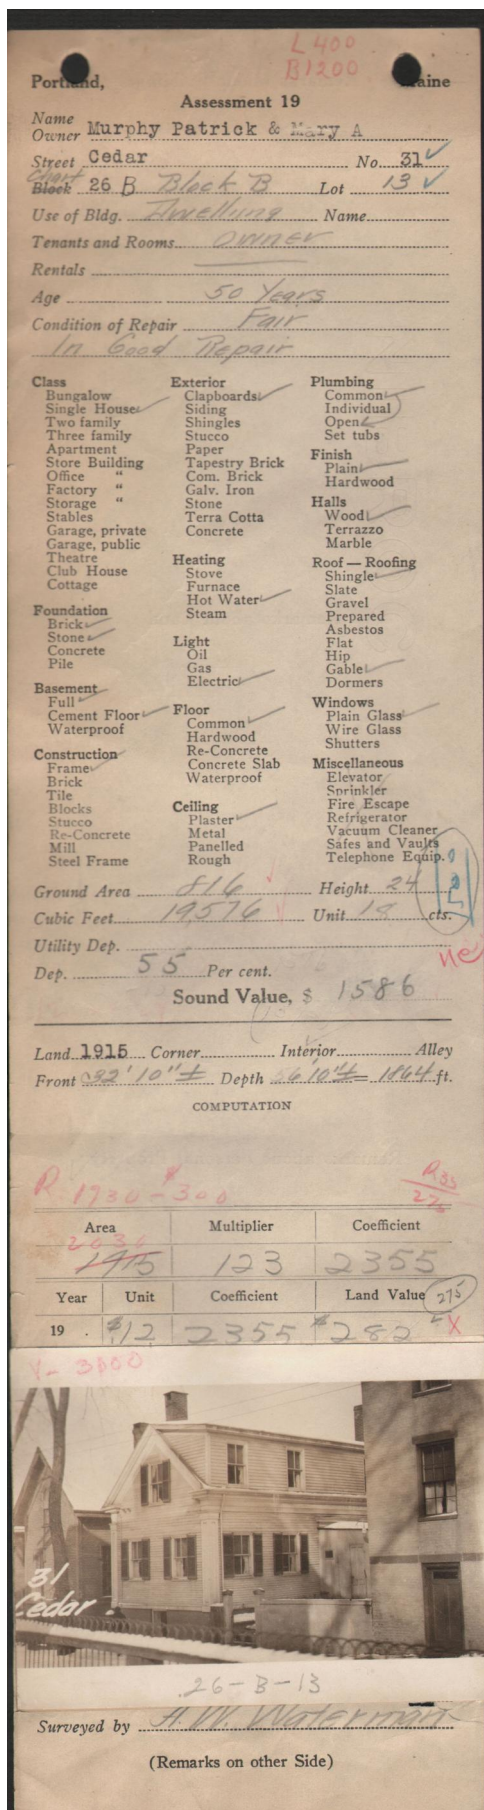 L 400
B1200
Portland, Maine
Assessment 19
Name
Owner Murphy Patrick & Mary A
Street Cedar No. 31 ✓
Chart
Block 26 B Block B Lot 13 ✓
Use of Bldg. Dwelling Name
Tenants and Rooms Owner
Rentals
Age 50 Years
Condition of Repair Fair
In Good Repair
Class
Bungalow
Single House ✓
Two family
Three family
Apartment
Store Building
Office "
Factory "
Storage "
Stables
Garage, private
Garage, public
Theatre
Club House
Cottage
Foundation
Brick ✓
Stone ✓
Concrete
Pile
Basement
Full ✓
Cement Floor ✓
Waterproof
Construction
Frame ✓
Brick
Tile
Blocks
Stucco
Re-Concrete
Mill
Steel Frame
Exterior
Clapboards ✓
Siding
Shingles
Stucco
Paper
Tapestry Brick
Com. Brick
Galv. Iron
Stone
Terra Cotta
Concrete
Heating
Stove
Furnace
Hot Water ✓
Steam
Light
Oil
Gas
Electric ✓
Floor
Common ✓
Hardwood
Re-Concrete
Concrete Slab
Waterproof
Ceiling
Plaster ✓
Metal
Panelled
Rough
Plumbing
Common ✓
Individual
Open ✓
Set tubs
Finish
Plain ✓
Hardwood
Halls
Wood ✓
Terrazzo
Marble
Roof — Roofing
Shingle ✓
Slate
Gravel
Prepared
Asbestos
Flat
Hip
Gable ✓
Dormers
Windows
Plain Glass ✓
Wire Glass
Shutters
Miscellaneous
Elevator
Sprinkler
Fire Escape
Refrigerator
Vacuum Cleaner
Safes and Vaults
Telephone Equip.
Ground Area 816 Height 24
Cubic Feet 19,576 Unit 18 cts.
Utility Dep.
Dep. 55 Per cent.
Sound Value, $ 1586
Land 1915 Corner Interior Alley
Front 32' 10" ± Depth 56' 10" ± = 1864 ft.
COMPUTATION
R 1930 - $300
R 35
275
Area Multiplier Coefficient
2036
1915 123 2355
Year Unit Coefficient Land Value 275
19 . $12 2355 $282 X
V- 3800
31
Cedar
26-B-13
Surveyed by A. W. Waterman
(Remarks on other Side)